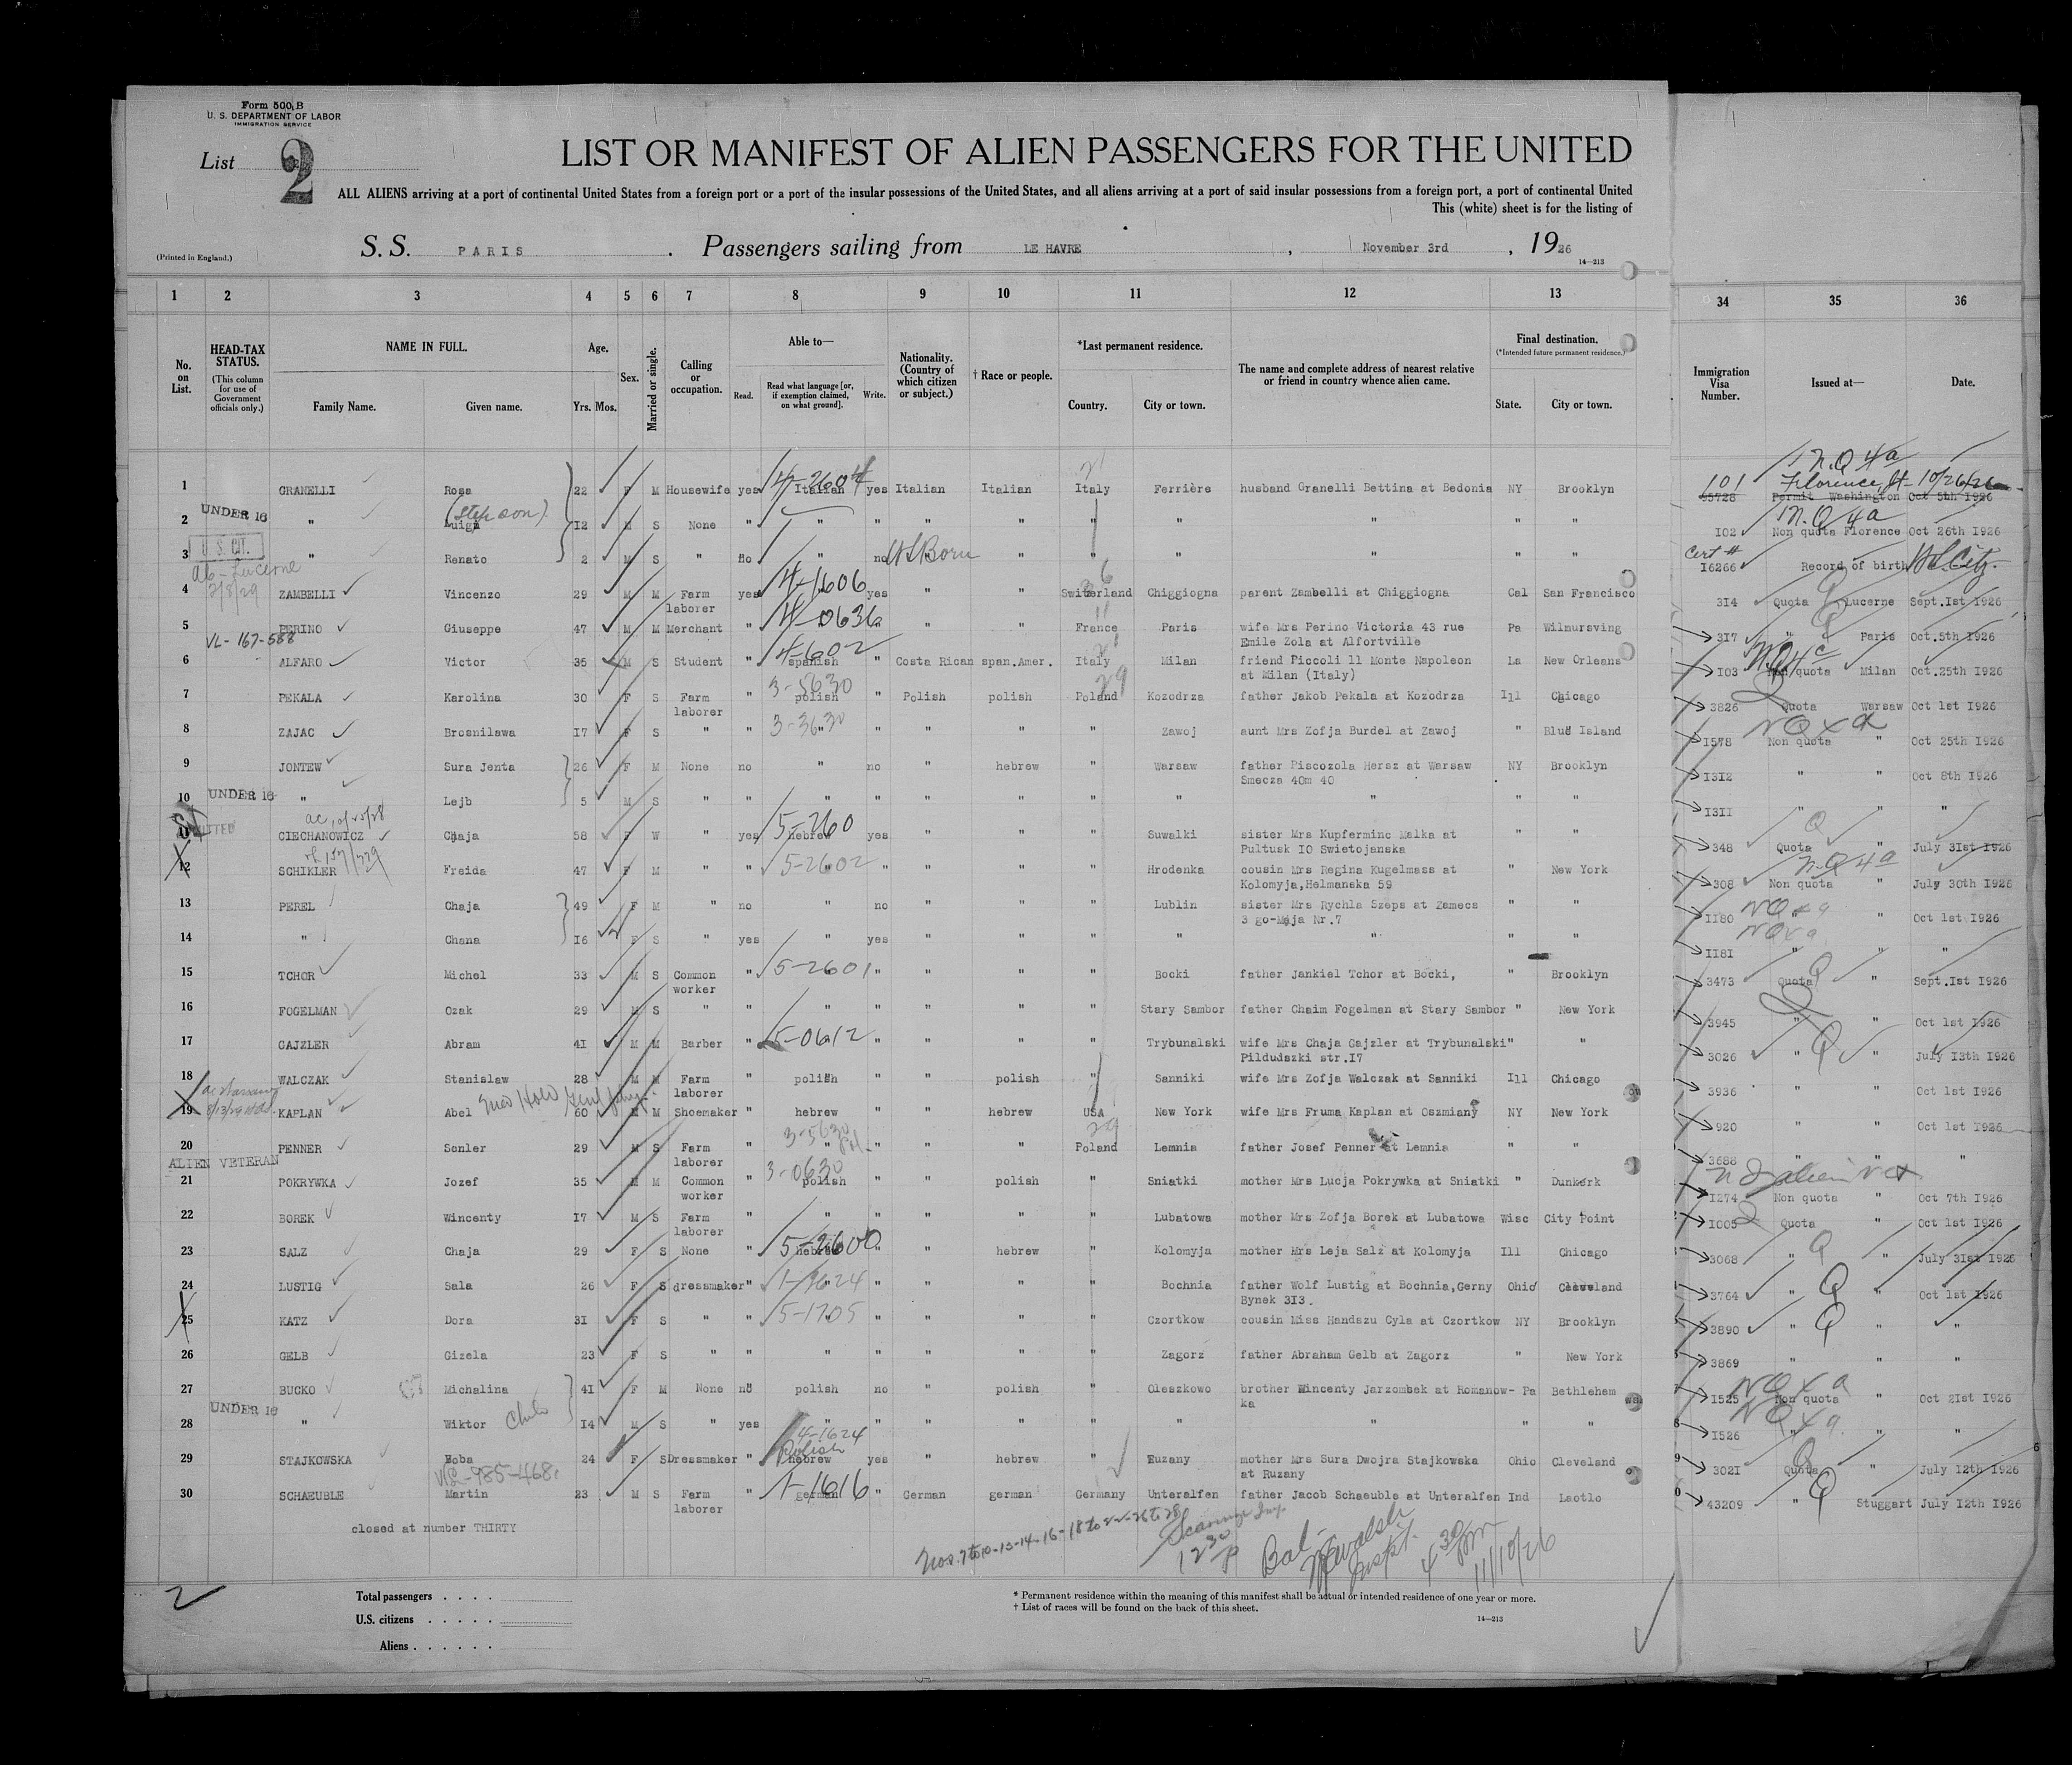 Form 500, B
U. S. DEPARTMENT OF LABOR
IMMIGRATION SERVICE
List 2
LIST OR MANIFEST OF ALIEN PASSENGERS FOR THE UNITED
ALL ALIENS arriving at a port of continental United States from a foreign port or a port of the insular possessions of the United States, and all aliens arriving at a port of said insular possessions from a foreign port, a port of continental United
This (white) sheet is for the listing of
(Printed in England.)
S. S. PARIS . Passengers sailing from LE HAVRE , November 3rd , 1926
14—213
1 2 3 4 5 6 7 8 9 10 11 12 13 34 35 36
No. on List.
HEAD-TAX STATUS. (This column for use of Government officials only.)
NAME IN FULL. Family Name. Given name.
Age. Yrs. Mos.
Sex.
Married or single.
Calling or occupation.
Able to— Read. Read what language [or, if exemption claimed, on what ground]. Write.
Nationality. (Country of which citizen or subject.)
† Race or people.
*Last permanent residence. Country. City or town.
The name and complete address of nearest relative or friend in country whence alien came.
Final destination. (*Intended future permanent residence.) State. City or town.
Immigration Visa Number.
Issued at—
Date.
N.Q 4a
1 GRANELLI Rosa 22 F M Housewife yes 4-2604 Italian yes Italian Italian Italy Ferrière husband Granelli Bettina at Bedonia NY Brooklyn 101 65728 Florence, It- 10/26/26 Permit Washington Oct 5th 1926
UNDER 16 (Step son) N.Q 4a
2 " Luigi I2 M S None " " " " " " " " " " I02 Non quota Florence Oct 26th I926
U. S. CIT. Cert #
3 " Renato 2 M S " no " no US Born " " " " " " I6266 Record of birth US Citz.
ab - Lucerne
3/8/29
4 ZAMBELLI Vincenzo 29 M M Farm laborer yes 4-1606 yes " " Switzerland Chiggiogna parent Zambelli at Chiggiogna Cal San Francisco 3I4 Quota Lucerne Sept.Ist I926
5 PERINO Giuseppe 47 M M Merchant " 4-0636 " " " France Paris wife Mrs Perino Victoria 43 rue Emile Zola at Alfortville Pa Wilmursving 3I7 " Paris Oct.5th I926
VL- 167-588
6 ALFARO Victor 35 M S Student " 4-602 spanish " Costa Rican span.Amer. Italy Milan friend Piccoli 11 Monte Napoleon at Milan (Italy) La New Orleans I03 Non quota Milan Oct.25th I926
7 PEKALA Karolina 30 F S Farm laborer " 3-5630 polish " Polish polish Poland Kozodrza father Jakob Pekala at Kozodrza Ill Chicago 3826 Quota Warsaw Oct 1st I926
8 ZAJAC Brosnilawa I7 F S " " 3-3630 " " " " " Zawoj aunt Mrs Zofja Burdel at Zawoj " Blue Island I578 Non quota " Oct 25th I926
9 JONTEW Sura Jenta 26 F M None no " no " hebrew " Warsaw father Piscozola Hersz at Warsaw Smecza 40m 40 NY Brooklyn I3I2 " " Oct 8th I926
UNDER 16
10 " Lejb 5 M S " " " " " " " " " " " I3II " " "
11 CIECHANOWICZ Chaja 58 F W " yes 5-260 hebrew yes " " " Suwalki sister Mrs Kupferminc Malka at Pultusk IO Swietojanska " " 348 Quota " July 3Ist I926
12 SCHIKLER Freida 47 F M " " 5-2602 " " " " Hrodenka cousin Mrs Regina Kugelmass at Kolomyja,Helmanska 59 " New York 308 Non quota " July 30th I926
13 PEREL Chaja 49 F M " no " no " " " Lublin sister Mrs Rychla Szeps at Zamecs 3 go-Maja Nr.7 " " II80 " " Oct 1st I926
14 " Chana I6 F S " yes " yes " " " " " " " II8I " " "
15 TCHOR Michel 33 M S Common worker " 5-2601 " " " " Bocki father Jankiel Tchor at Bocki, " Brooklyn 3473 Quota " Sept.Ist I926
16 FOGELMAN Ozak 29 M S " " " " " " " Stary Sambor father Chaim Fogelman at Stary Sambor " New York 3945 " " Oct 1st I926
17 GAJZLER Abram 4I M M Barber " 5-0612 " " " " Trybunalski wife Mrs Chaja Gajzler at Trybunalski Pilduiszki str.I7 " " 3026 " " July I3th I926
18 WALCZAK Stanislaw 28 M M Farm laborer " polish " " polish " Sanniki wife Mrs Zofja Walczak at Sanniki Ill Chicago 3936 " " Oct 1st I926
19 KAPLAN Abel 60 M M Shoemaker " hebrew " " hebrew USA New York wife Mrs Fruma Kaplan at Oszmiany NY New York 920 " " Oct 1st I926
20 PENNER Sonler 29 M S Farm laborer " 3-5630 " " " " Poland Lemnia father Josef Penner at Lemnia " " 3688 " " "
ALIEN VETERAN
21 POKRYWKA Jozef 35 M M Common worker " 3-0630 polish " " polish " Sniatki mother Mrs Lucja Pokrywka at Sniatki " Dunkerk I274 Non quota " Oct 7th I926
22 BOREK Wincenty I7 M S Farm laborer " " " " " " Lubatowa mother Mrs Zofja Borek at Lubatowa Wisc City Point I005 Quota " Oct 1st I926
23 SALZ Chaja 29 F S None " 5-2600 hebrew " " hebrew " Kolomyja mother Mrs Leja Salz at Kolomyja Ill Chicago 3068 " " July 3Ist I926
24 LUSTIG Sala 26 F S dressmaker " 1-1624 " " " " Bochnia father Wolf Lustig at Bochnia,Gerny Bynek 3I3. Ohio Cleveland 3764 " " Oct 1st I926
25 KATZ Dora 3I F S " " 5-1705 " " " " Czortkow cousin Miss Handszu Cyla at Czortkow NY Brooklyn 3890 " " "
26 GELB Gizela 23 F S " " " " " " " Zagorz father Abraham Gelb at Zagorz " New York 3869 " " "
27 BUCKO Michalina 4I F M None no polish no " polish " Oleszkowo brother Wincenty Jarzombek at Romanow-ka Pa Bethlehem I525 Non quota " Oct 2Ist I926
UNDER 16
28 " Wiktor Child I4 M S " yes " " " " " " " " " I526 " " "
29 STAJKOWSKA Boba 24 F S Dressmaker " 4-1624 Polish hebrew yes " hebrew " Ruzany mother Mrs Sura Dwojra Stajkowska at Ruzany Ohio Cleveland 302I Quota " July I2th I926
VL-985-468
30 SCHAEUBLE Martin 23 M S Farm laborer " 1-1616 german " German german Germany Unteralfen father Jacob Schaeuble at Unteralfen Ind Laotlo 43209 " Stuggart July I2th I926
closed at number THIRTY
Nos. 7 to 10-13-14-16-18 to 22-26 to 28
12 30 p
Bal- Insp. 4 30 pm 11/10/26
2
Total passengers . . . .
U.S. citizens . . . . .
Aliens . . . . . .
* Permanent residence within the meaning of this manifest shall be actual or intended residence of one year or more.
† List of races will be found on the back of this sheet.
14—213